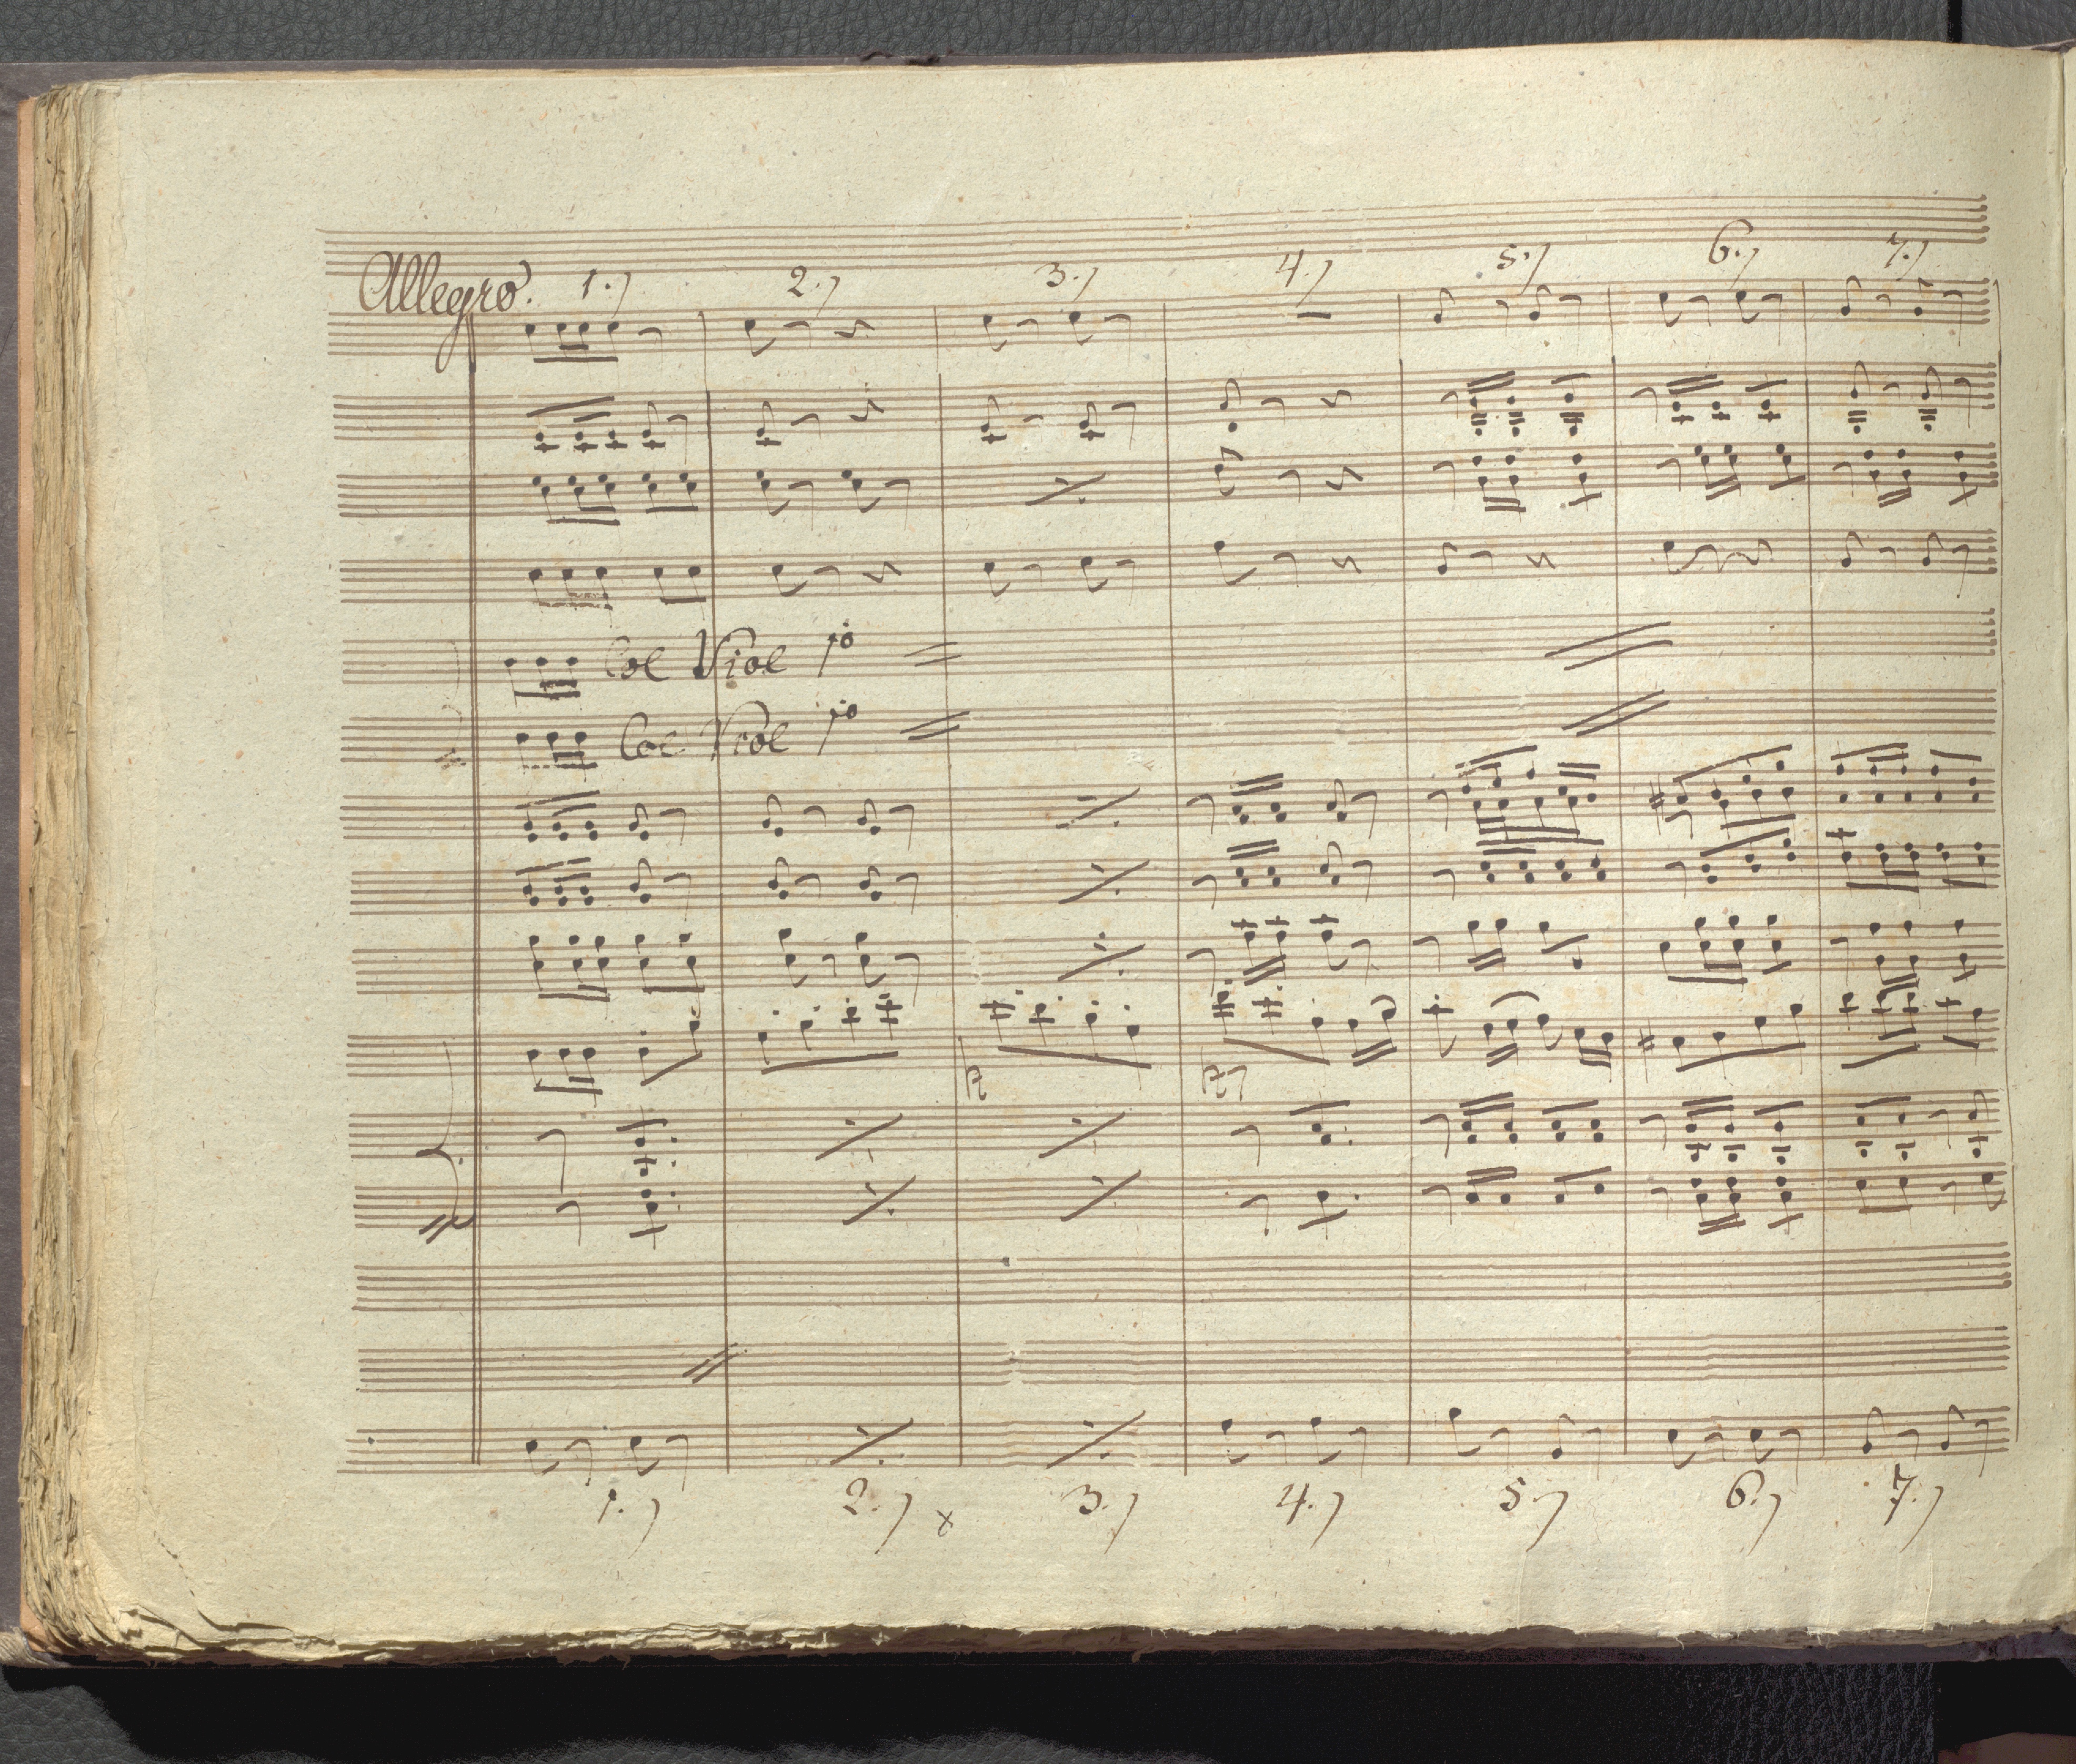 Allegro. 1.) 2.) 3.) 4.) 5.) 6.) 7.)
Col Viol 1o
Col Viol 1o
1.) 2.) x 3.) 4.) 5.) 6.) 7.)